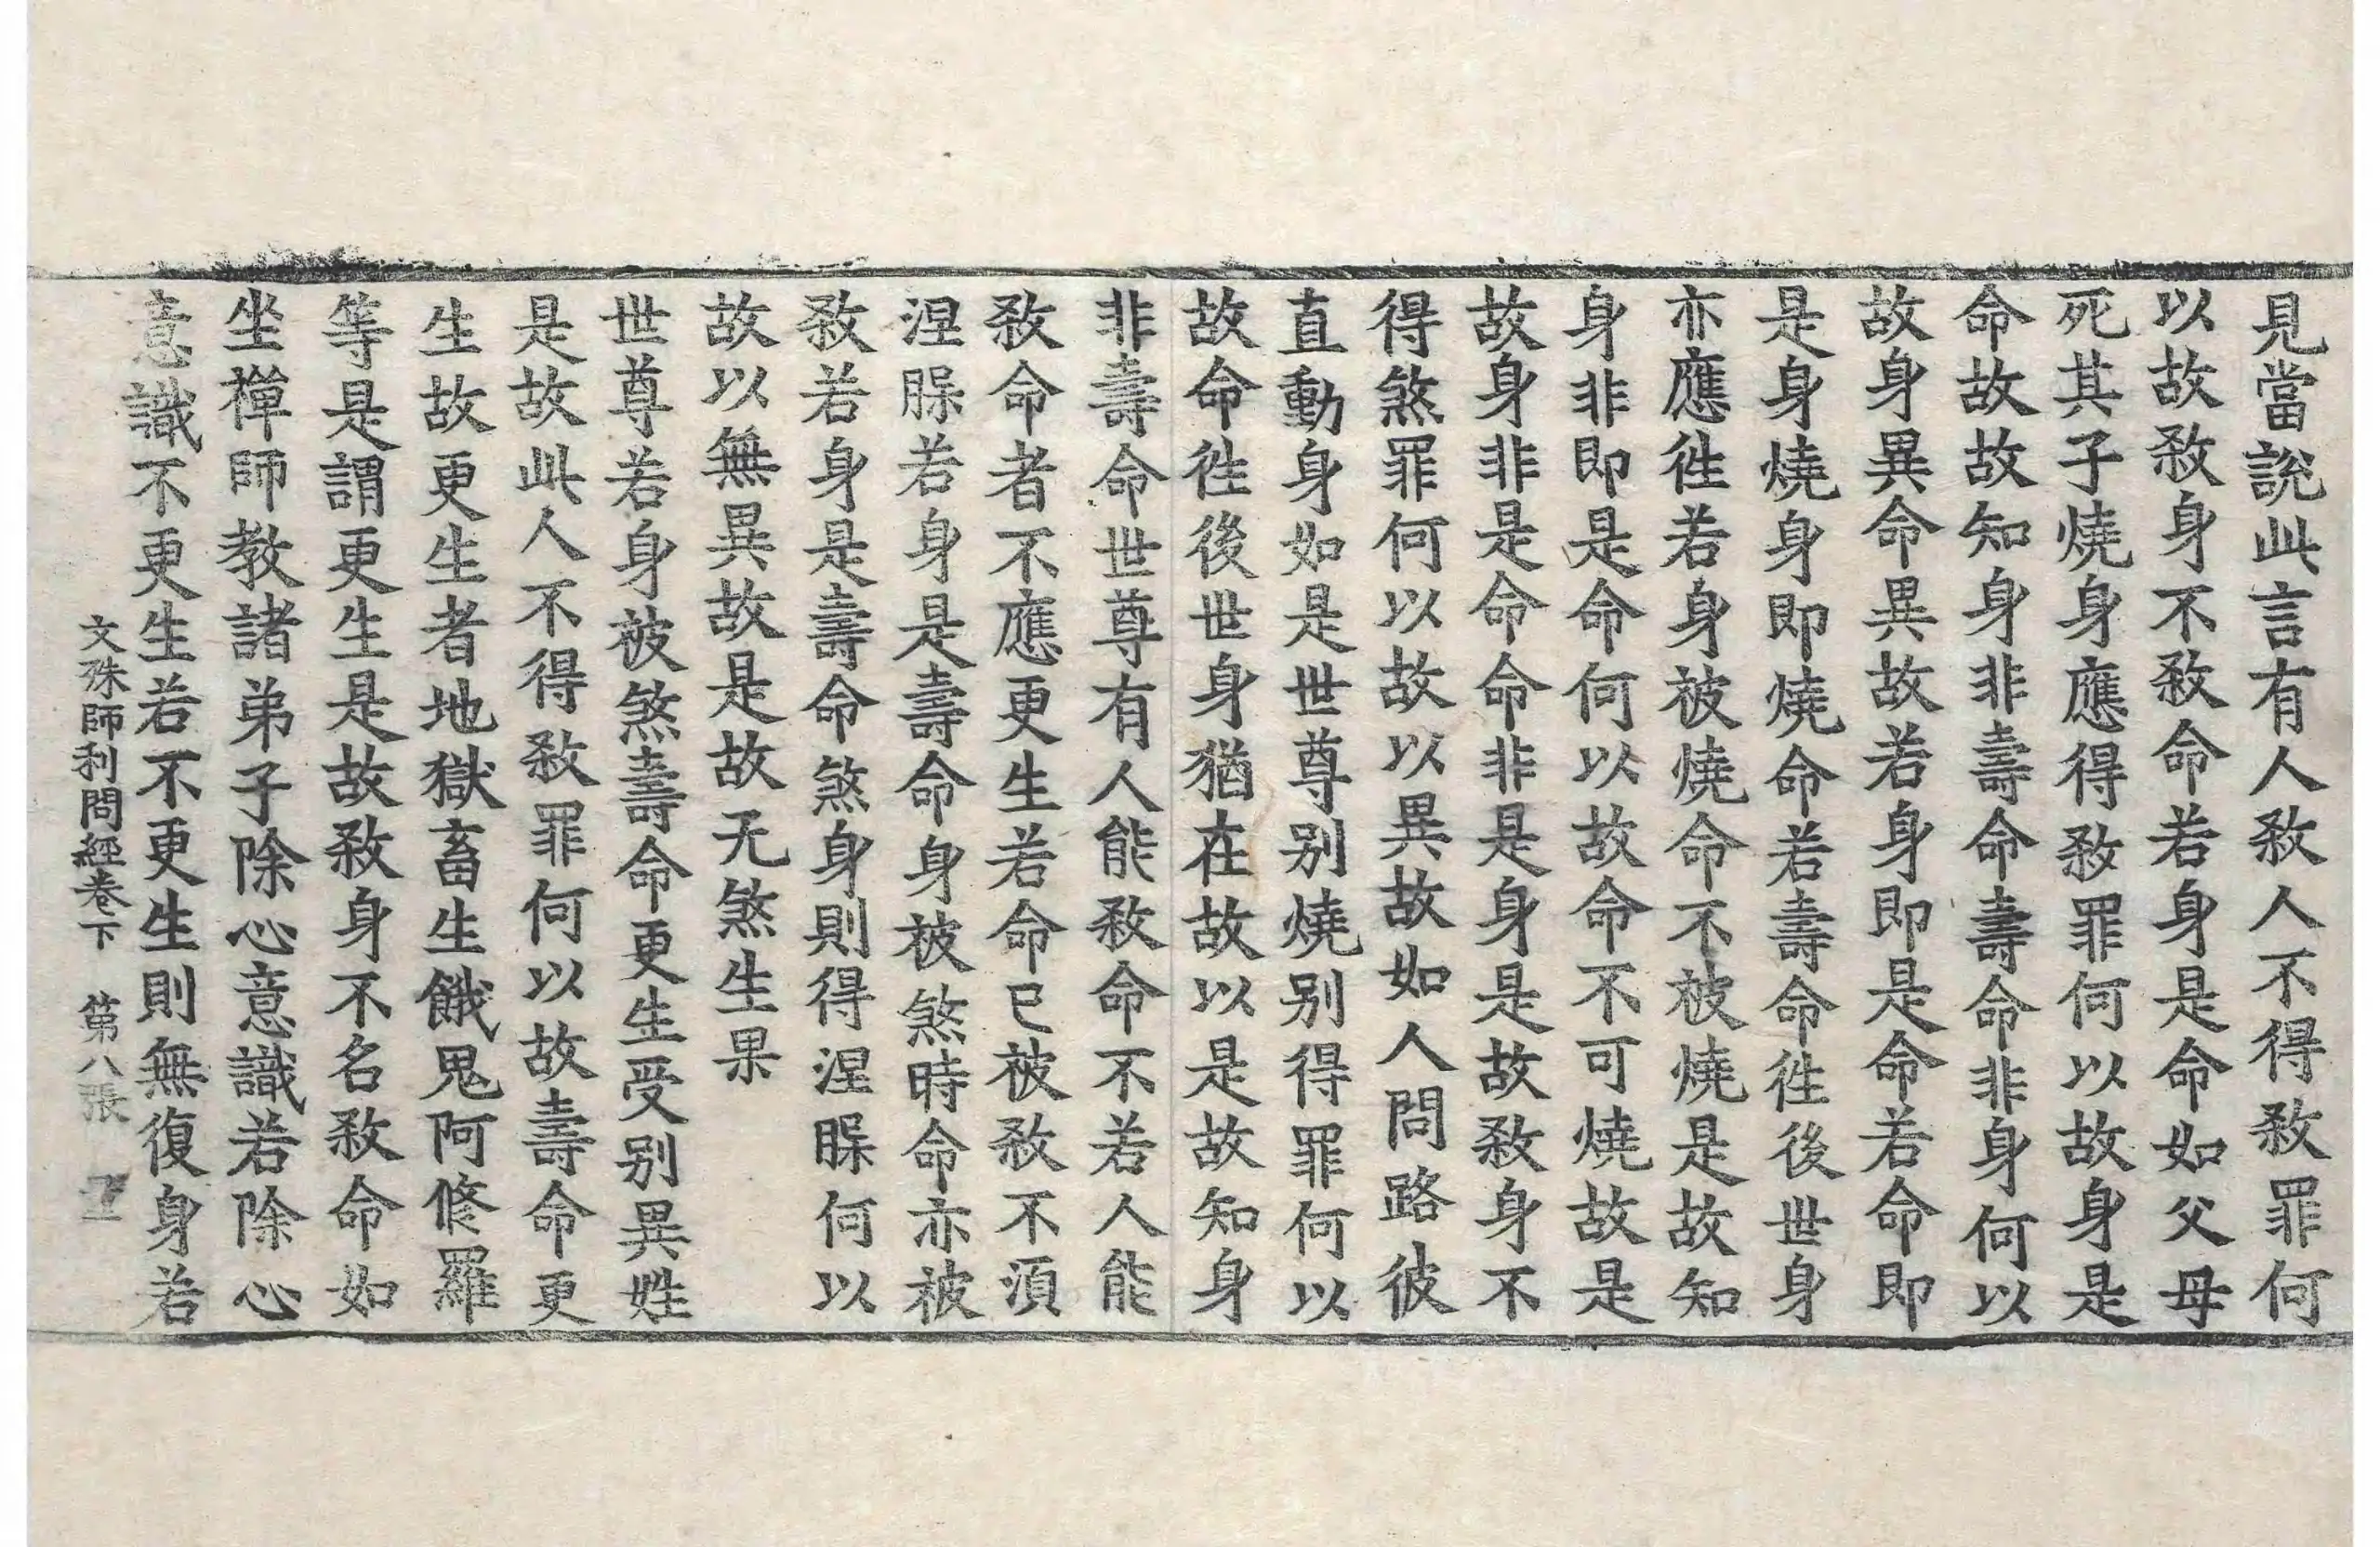 見當說此言有人敎人不得敎罪何
以故敎身不敎命若身是命如父母
死其子燒身應得敎罪何以故身是
命故故知身非壽命壽命非身何以
故身異命異故若身即是命若命即
是身燒身即燒命若壽命徃後世身
亦應徃若身被燒命不被燒是故知
身非即是命何以故命不可燒故是
故身非是命命非是身是故敎身不
得煞罪何以故以異故如人問路彼
直動身如是世尊别燒别得罪何以
故命徃後世身猶在故以是故知身
非壽命世尊有人能敎命不若人能
敎命者不應更生若命已被敎不須
涅䐪若身是壽命身被煞時命亦被
敎若身是壽命煞身則得涅䐪何以
故以無異故是故无煞生果
世尊若身被煞壽命更生受别異姓
是故此人不得敎罪何以故壽命更
生故更生者地獄畜生餓鬼阿修羅
等是謂更生是故敎身不名敎命如
坐禪師教諸弟子除心意識若除心
意識不更生若不更生則無復身若
文殊師利問經卷下 第八張